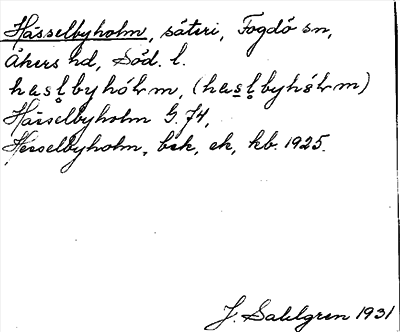 Hässelbyholm, säteri, Fogdö sn,
Åkers hd, Söd. l.
hasḷbyhólm, (hasḷbyhólm)
Hässelbyholm G. 74,
Hesselbyholm, bsk, ek, kb. 1925.
J. Sahlgren 1931